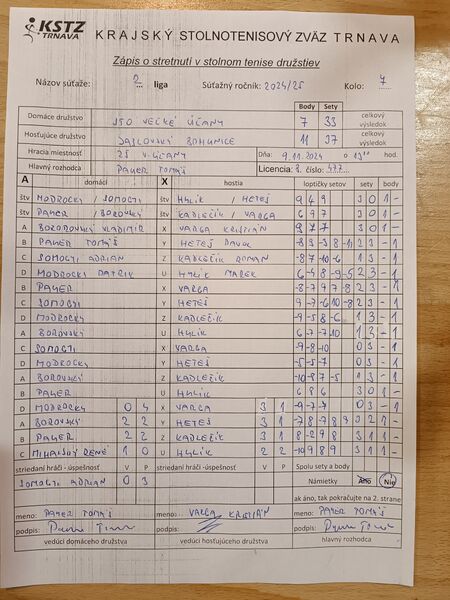 KSTZ
TRNAVA
KRAJSKÝ STOLNOTENISOVÝ ZVÄZ TRNAVA
Zápis o stretnutí v stolnom tenise družstiev
Názov súťaže: 2 liga Súťažný ročník: 2024/25 Kolo: 7
Body Sety
Domáce družstvo ŠSO VEĽKÉ ÚĽANY 7 33 celkový výsledok
Hosťujúce družstvo JASLOVSKÉ BOHUNICE 11 37 celkový výsledok
Hracia miestnosť ZŠ V. ÚĽANY Dňa: 9.11.2024 o hod.
Hlavný rozhodca PAYER TOMÁŠ Licencia: číslo:
A domáci X hostia loptičky setov sety body
štv MODROCKÝ / SOMOGYI štv HYLIK / HETEŠ 9 4 9 3 0 1 -
štv PAYER / BOROVSKÝ štv KADLEČÍK / VARGA 6 9 7 3 0 1 -
A VLADIMÍR X VARGA KRISTIÁN 9 7 7 3 0 1 -
B PAYER TOMÁŠ Y HETEŠ 2 3 - 1
C SOMOGYI ADRIAN Z KADLEČÍK ROMAN -8 7 -10 -6 1 3 - 1
D MODROCKÝ PATRIK U HYLIK MAREK 2 3 - 1
B PAYER X VARGA -8 -7 9 7 8 3 2 1 -
C SOMOGYI Y HETEŠ 9 -7 -6 10 -8 2 3 - 1
D MODROCKÝ Z KADLEČÍK 9 -5 -8 -6 1 3 - 1
A BOROVSKÝ U HYLIK 6 -7 -7 -10 1 3 - 1
C SOMOGYI X VARGA -9 -8 -10 0 3 - 1
D MODROCKÝ Y HETEŠ -5 -5 -7 0 3 - 1
A BOROVSKÝ Z KADLEČÍK -10 -8 7 -5 1 3 - 1
B PAYER U HYLIK 6 8 6 3 0 1 -
V P V P
D MODROCKÝ 0 4 X VARGA 3 1 -9 -7 -7 0 3 - 1
A BOROVSKÝ 2 2 Y HETEŠ 3 1 -7 8 -7 8 9 3 2 1 -
B PAYER 2 2 Z KADLEČÍK 3 1 8 -2 9 8 3 1 1 -
C MIHALOVJ RENÉ 1 0 U HYLIK 2 2 -10 9 8 9 3 1 1 -
striedaní hráči - úspešnosť V P striedaní hráči -úspešnosť V P Spolu sety a body
SOMOGYI ADRIAN 0 3 Námietky Áno Nie
ak áno, tak pokračujte na 2. strane
meno: PAYER TOMÁŠ meno: VARGA KRISTIÁN meno: PAYER TOMÁŠ
podpis: podpis: podpis:
vedúci domáceho družstva vedúci hosťujúceho družstva hlavný rozhodca